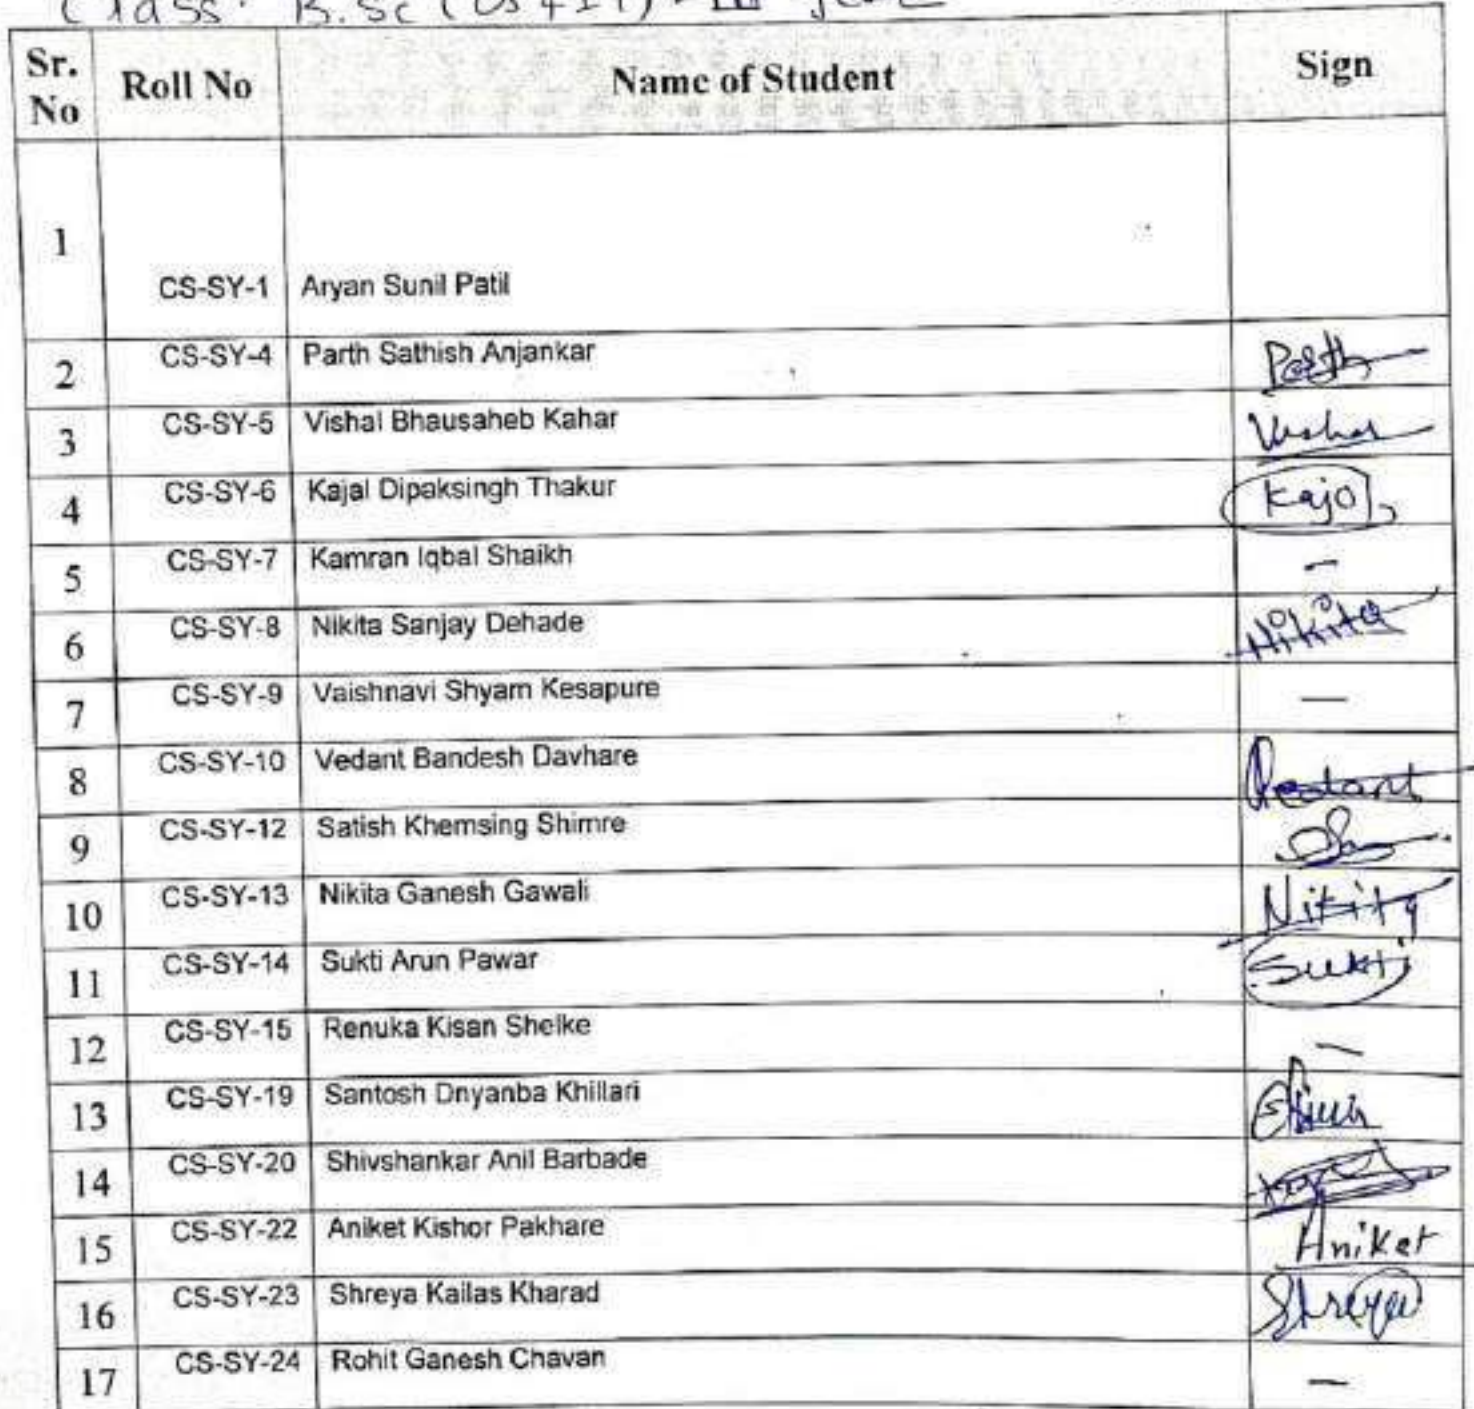 Class: B.Sc (CS+IT) - III year
Sr. No Roll No Name of Student Sign
1 CS-SY-1 Aryan Sunil Patil
2 CS-SY-4 Parth Sathish Anjankar Parth
3 CS-SY-5 Vishal Bhausaheb Kahar Vishal
4 CS-SY-6 Kajal Dipaksingh Thakur Kajol
5 CS-SY-7 Kamran Iqbal Shaikh –
6 CS-SY-8 Nikita Sanjay Dehade Nikita
7 CS-SY-9 Vaishnavi Shyam Kesapure –
8 CS-SY-10 Vedant Bandesh Davhare Vedant
9 CS-SY-12 Satish Khemsing Shimre
10 CS-SY-13 Nikita Ganesh Gawali Nikita
11 CS-SY-14 Sukti Arun Pawar Sukti
12 CS-SY-15 Renuka Kisan Shelke –
13 CS-SY-19 Santosh Dnyanba Khillari
14 CS-SY-20 Shivshankar Anil Barbade
15 CS-SY-22 Aniket Kishor Pakhare Aniket
16 CS-SY-23 Shreya Kailas Kharad Shreya
17 CS-SY-24 Rohit Ganesh Chavan –